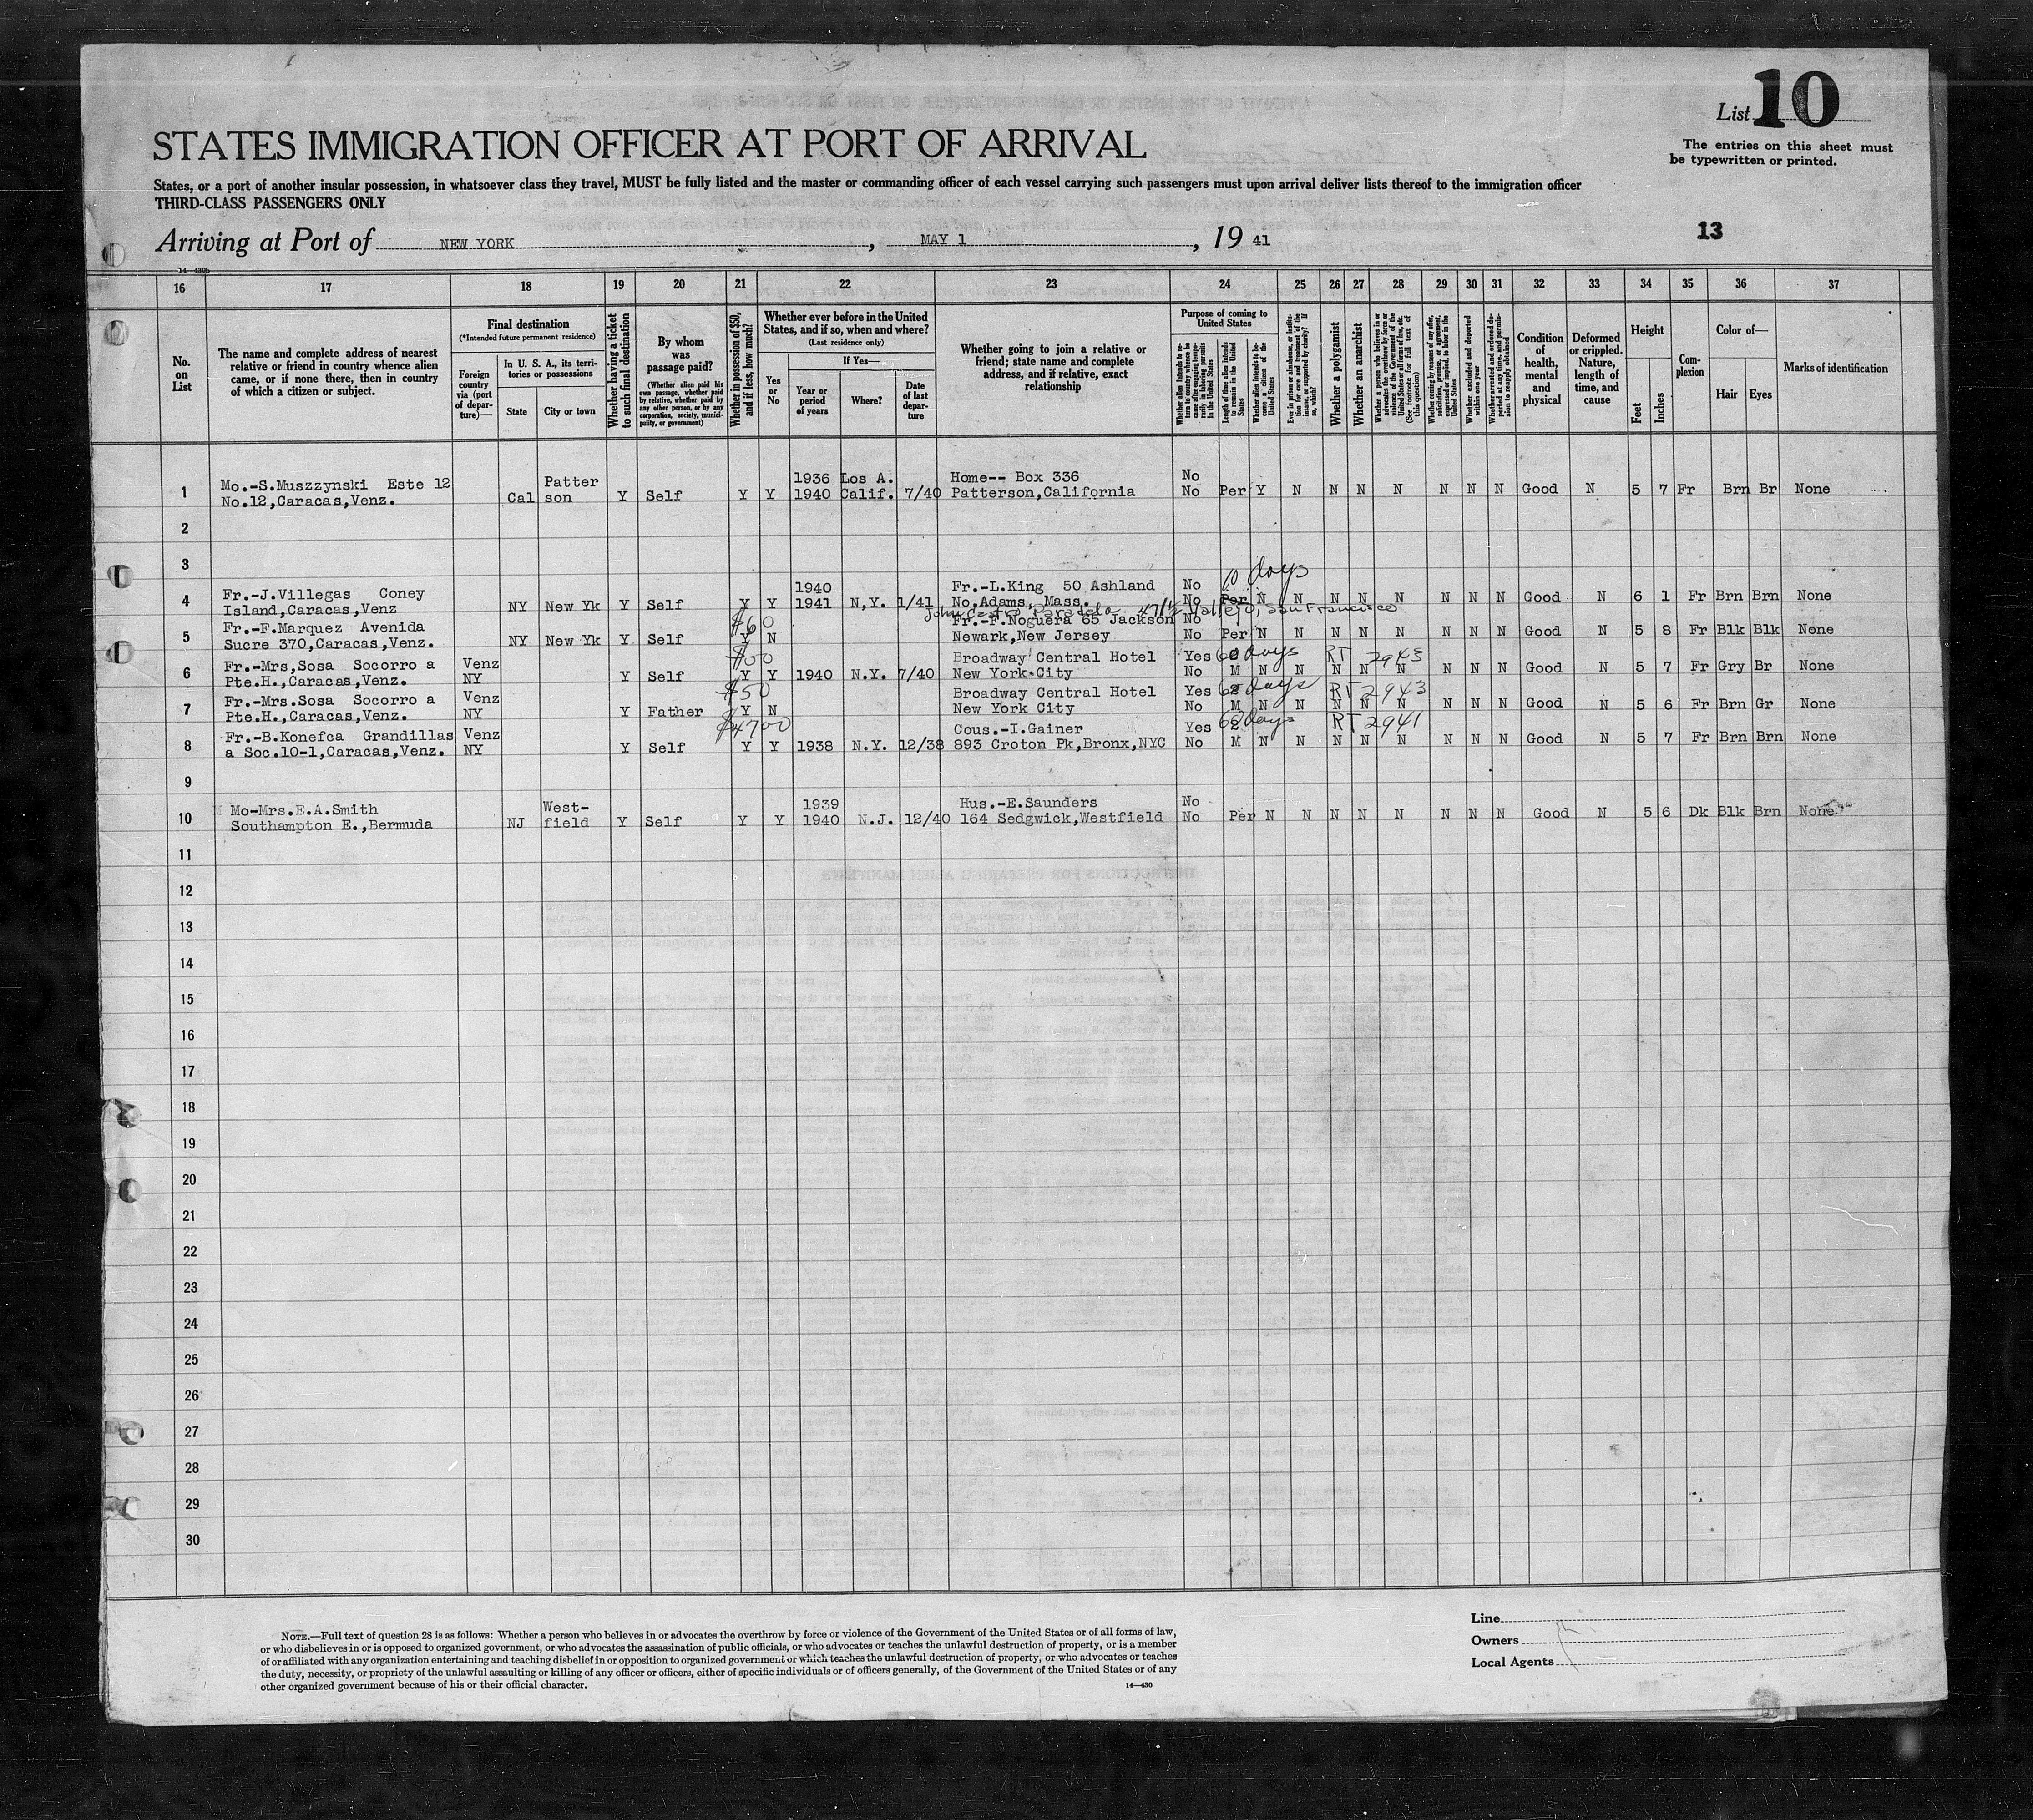 List 10
STATES IMMIGRATION OFFICER AT PORT OF ARRIVAL
The entries on this sheet must
be typewritten or printed.
States, or a port of another insular possession, in whatsoever class they travel, MUST be fully listed and the master or commanding officer of each vessel carrying such passengers must upon arrival deliver lists thereof to the immigration officer
THIRD-CLASS PASSENGERS ONLY
Arriving at Port of NEW YORK, MAY 1, 19 41
13
14-430b
16 17 18 19 20 21 22 23 24 25 26 27 28 29 30 31 32 33 34 35 36 37
No. on List
The name and complete address of nearest relative or friend in country whence alien came, or if none there, then in country of which a citizen or subject.
Final destination
(*Intended future permanent residence)
Foreign country via (port of departure)—
In U. S. A., its territories or possessions
State
City or town
Whether having a ticket to such final destination
By whom was passage paid?
(Whether alien paid his own passage, whether paid by relative, whether paid by any other person, or by any corporation, society, municipality, or government)
Whether in possession of $50, and if less, how much?
Whether ever before in the United States, and if so, when and where?
(Last residence only)
Yes or No
If Yes—
Year or period of years
Where?
Date of last departure
Whether going to join a relative or friend; state name and complete address, and if relative, exact relationship
Purpose of coming to United States
Length of time alien intends to remain in the United States
Whether alien intends to become a citizen of the United States
Whether a polygamist
Whether an anarchist
(See footnote for full text of this question)
Whether excluded and deported within one year
Condition of health, mental and physical
Deformed or crippled. Nature, length of time, and cause
Height
Feet
Inches
Complexion
Color of—
Hair
Eyes
Marks of identification
1 Mo.-S.Muszzynski Este 12 Patter 1936 Los A. Home-- Box 336 No
No.12,Caracas,Venz. Cal son Y Self Y Y 1940 Calif. 7/40 Patterson,California No Per Y N N N N N N N Good N 5 7 Fr Brn Br None
2
3
10 days
4 Fr.-J.Villegas Coney 1940 Fr.-L.King 50 Ashland No
Island,Caracas,Venz NY New Yk Y Self Y Y 1941 N,Y. 1/41 No,Adams, Mass. No Per N N N N N N N N Good N 6 1 Fr Brn Brn None
John Castro Paradela 471½ Vallejo, San Francisco
5 Fr.-F.Marquez Avenida $60 Fr.-F.Noguera 65 Jackson No
Sucre 370,Caracas,Venz. NY New Yk Y Self Y N Newark,New Jersey No Per N N N N N N N N Good N 5 8 Fr Blk Blk None
6 Fr.-Mrs,Sosa Socorro a Venz Broadway Central Hotel Yes 60 days RT 2943
Pte.H.,Caracas,Venz. NY Y Self Y Y 1940 N.Y. 7/40 New York City No M N N N N N N N N Good N 5 7 Fr Gry Br None
7 Fr.-Mrs.Sosa Socorro a Venz $50 Broadway Central Hotel Yes 60 days RT 2943
Pte.H.,Caracas,Venz. NY Y Father Y N New York City No M N N N N N N N N Good N 5 6 Fr Brn Gr None
8 Fr.-B.Konefca Grandillas Venz $4700 Cous.-I.Gainer Yes 60 days RT 2941
a Soc.10-1,Caracas,Venz. NY Y Self Y Y 1938 N.Y. 12/38 893 Croton Pk,Bronx,NYC No M N N N N N N N N Good N 5 7 Fr Brn Brn None
9
10 Mo-Mrs.E.A.Smith West- 1939 Hus.-E.Saunders No
Southampton E.,Bermuda NJ field Y Self Y Y 1940 N.J. 12/40 164 Sedgwick,Westfield No Per N N N N N N N N Good N 5 6 Dk Blk Brn None
11
12
13
14
15
16
17
18
19
20
21
22
23
24
25
26
27
28
29
30
NOTE.—Full text of question 28 is as follows: Whether a person who believes in or advocates the overthrow by force or violence of the Government of the United States or of all forms of law,
or who disbelieves in or is opposed to organized government, or who advocates the assassination of public officials, or who advocates or teaches the unlawful destruction of property, or is a member
of or affiliated with any organization entertaining and teaching disbelief in or opposition to organized government or which teaches the unlawful destruction of property, or who advocates or teaches
the duty, necessity, or propriety of the unlawful assaulting or killing of any officer or officers, either of specific individuals or of officers generally, of the Government of the United States or of any
other organized government because of his or their official character.
14—430
Line
Owners
Local Agents